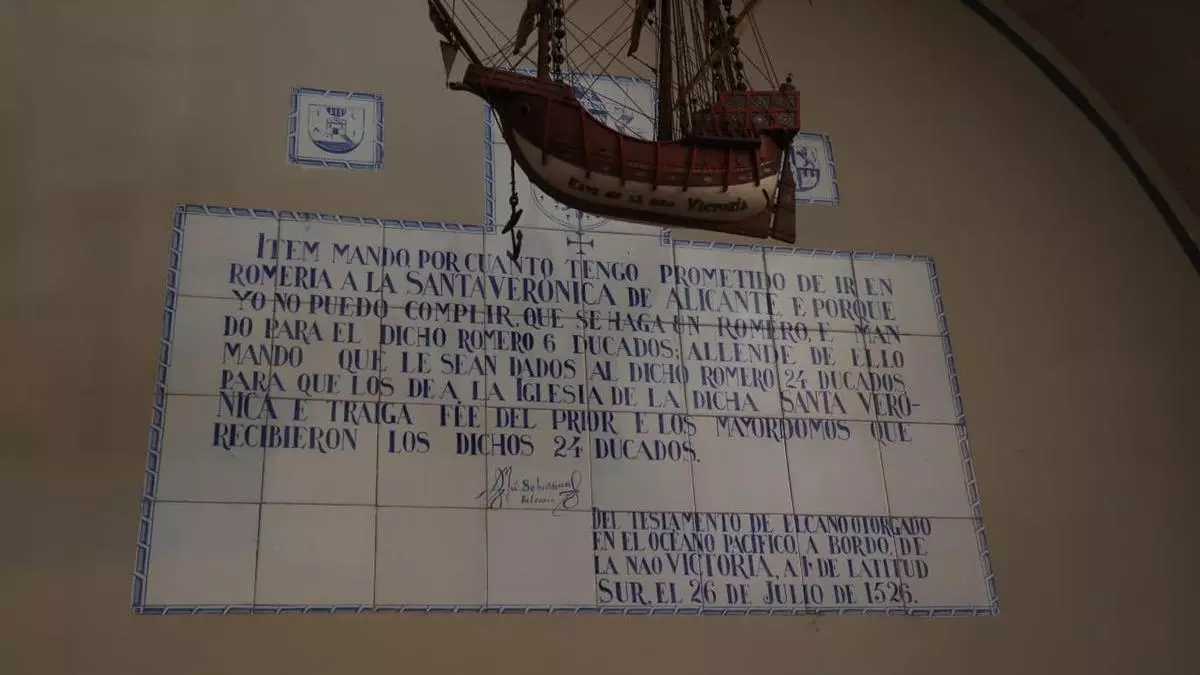 Nao Victoria
ITEM MANDO, POR CUANTO TENGO PROMETIDO DE IR EN
ROMERIA A LA SANTA VERONICA DE ALICANTE E PORQUE
YO NO PUEDO COMPLIR, QUE SE HAGA UN ROMERO, E MAN
DO PARA EL DICHO ROMERO 6 DUCADOS; ALLENDE DE ELLO
MANDO QUE LE SEAN DADOS AL DICHO ROMERO 24 DUCADOS
PARA QUE LOS DE A LA IGLESIA DE LA DICHA SANTA VERO-
NICA E TRAIGA FÉE DEL PRIOR E LOS MAYORDOMOS QUE
RECIBIERON LOS DICHOS 24 DUCADOS.
Sebastian
DEL TESTAMENTO DE ELCANO OTORGADO
EN EL OCÉANO PACÍFICO, A BORDO, DE
LA NAO VICTORIA, A 1º DE LATITUD
SUR, EL 26 DE JULIO DE 1526.